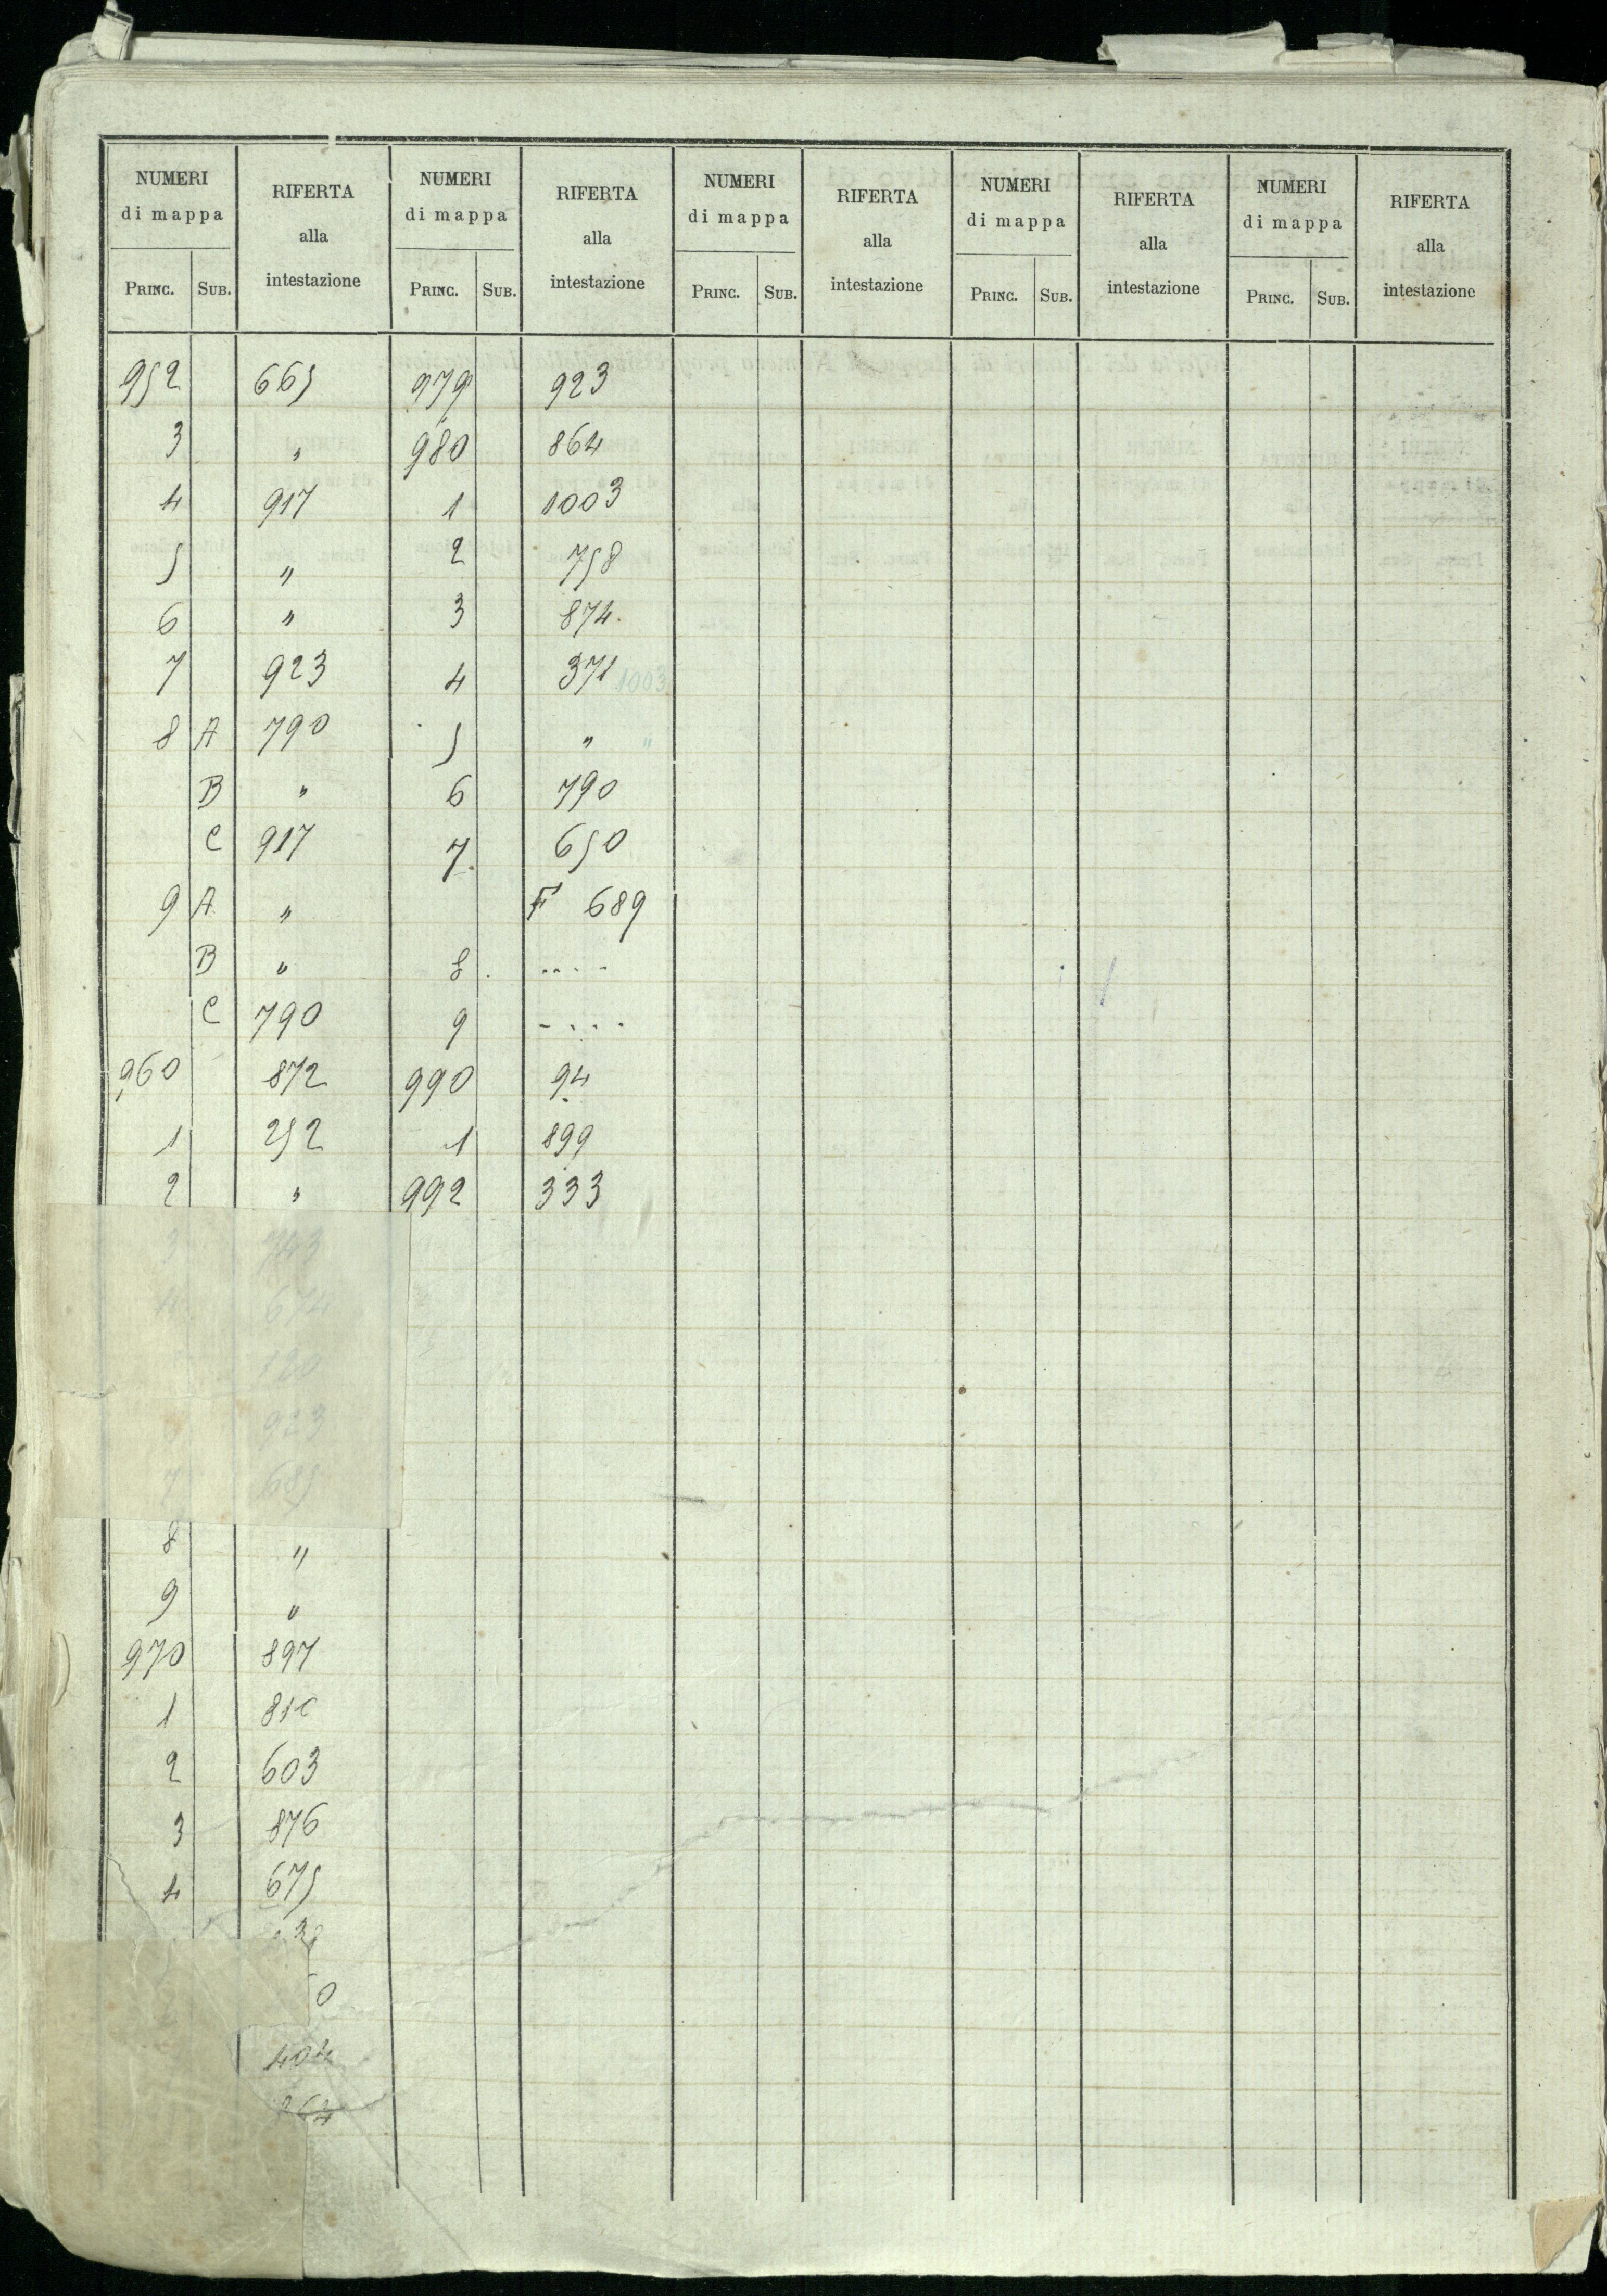 NUMERI di mappa | RIFERTA alla intestazione | NUMERI di mappa | RIFERTA alla intestazione | NUMERI di mappa | RIFERTA alla intestazione | NUMERI di mappa | RIFERTA alla intestazione | NUMERI di mappa | RIFERTA alla intestazione
PRINC. | SUB. | PRINC. | SUB. | PRINC. | SUB. | PRINC. | SUB. | PRINC. | SUB.
952 665 979 923
3 " 980 864
4 917 1 1003
5 " 2 758
6 " 3 874
7 923 4 371 1003
8 A 790 5 " "
B " 6 790
C 917 7 650
9 A " F 689
B " 8 ....
C 790 9 ....
960 872 990 94
1 252 1 899
2 " 992 333
3 743
4 674
120
923
7 685
8 "
9 "
970 897
1 810
2 603
3 876
4 675
404